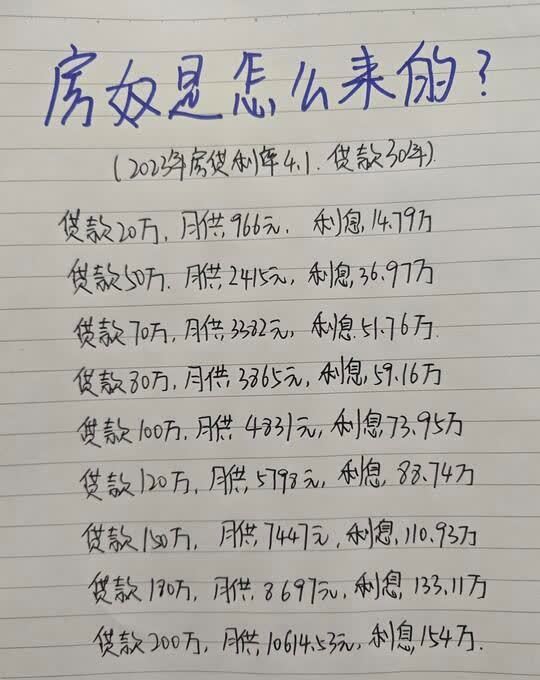 房奴是怎么来的?
(2023年房贷利率4.1.贷款30年)
贷款20万,月供,966元,利息,14.79万
贷款50万.月供,2415元,利息,36.97万
贷款70万,月供,3382元,利息,51.76万.
贷款80万,月供,3865元,利息,59.16万
贷款100万,月供,4831元,利息,73.95万
贷款120万,月供,5798元,利息,88.74万
贷款150万,月供,7447元,利息,110.93万
贷款180万,月供,8697元,利息,133.11万
贷款200万,月供,10614.53元,利息,154万.